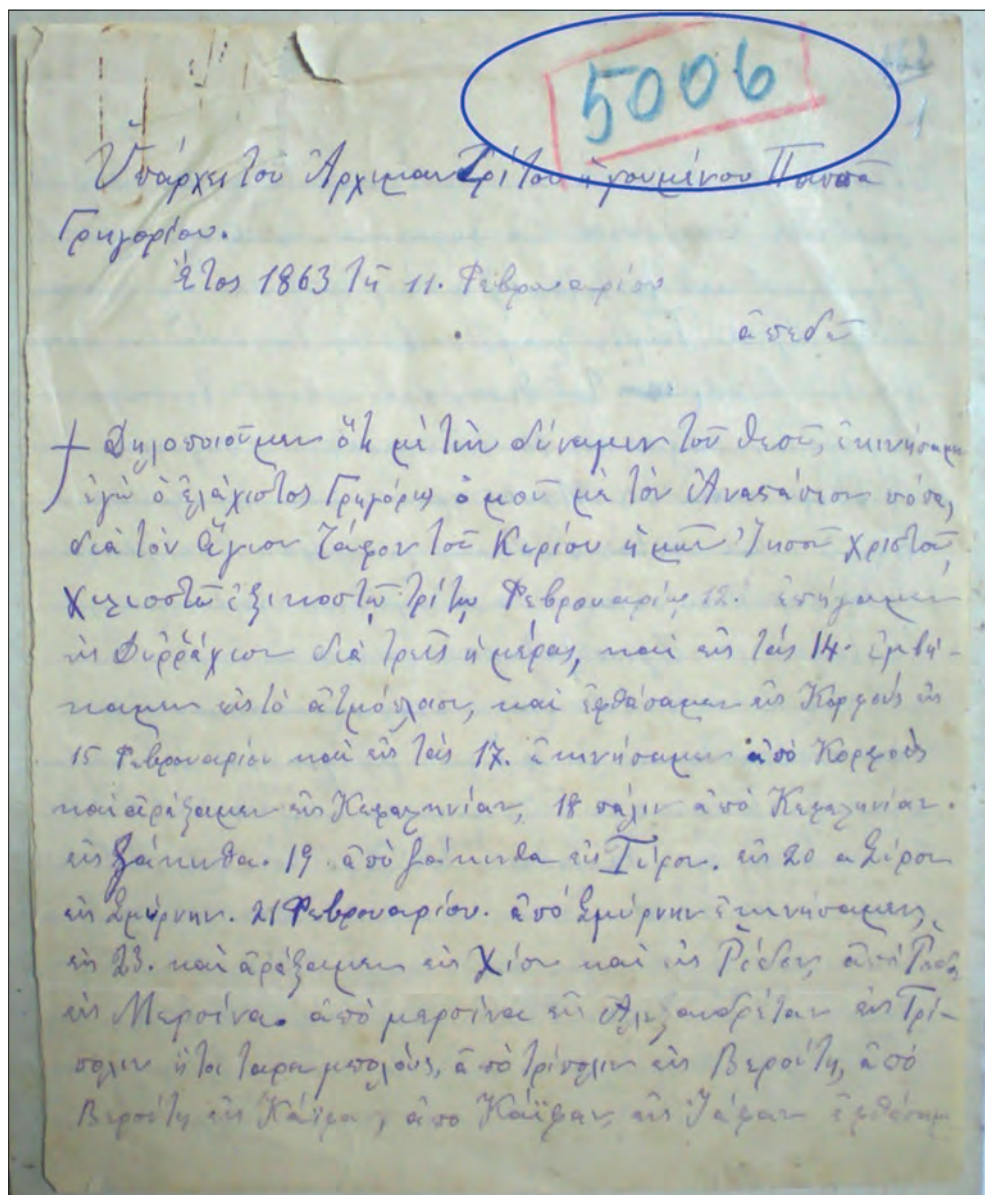 5006
Ὑπάρχει τοῦ Ἀρχιμανδρίτου ἡγουμένου Παππᾶ
Γρηγορίου.
ἔτος 1863 τῇ 11. Φεβρουαρίου
+ Δηλοποιοῦμεν ὅτι μὲ τὴν δύναμιν τοῦ Θεοῦ, ἐκινήσαμεν
ἐγὼ ὁ ἐλάχιστος Γρηγόριος ὁμοῦ μὲ τὸν Ἀναστάσιον
διὰ τὸν Ἅγιον τάφον τοῦ Κυρίου ἡμῶν Ἰησοῦ Χριστοῦ,
χιλιοστῷ ἑξικοστῷ τρίτῳ Φεβρουαρίῳ 12. ἐπήγαμεν
εἰς Δυῤῥάχιον διὰ τρεῖς ἡμέρας, καὶ εἰς τάς 14. ἐμβή-
καμεν εἰς τὸ ἀτμόπλοιον, καὶ ἐφθάσαμεν εἰς Κορφοὺς εἰς
15 Φεβρουαρίου καὶ εἰς τάς 17. ἐκινήσαμεν ἀπὸ Κορφοὺς
καὶ ἀράξαμεν εἰς Κεφαληνίαν, 18 πάλιν ἀπὸ Κεφαληνίαν.
εἰς Ζάκινθα. 19 ἀπὸ Ζάκινθα εἰς Σύρον. εἰς 20 α Σύρον
εἰς Σμύρνην. 21 Φεβρουαρίου. ἀπὸ Σμύρνην ἐκινήσαμεν,
εἰς 23. καὶ ἀράξαμεν εἰς Χίον καὶ εἰς Ῥόδον, ἀπὸ Ῥόδον
εἰς Μερσίνα. ἀπὸ μερσίνα εἰς Ἀλεξανδρέταν εἰς Τρί-
πολιν ἤτοι ταραμπολοὺς, ἀπὸ τρίπολιν εἰς Βερούτη, ἀπὸ
Βερούτη εἰς Κάϊφα, ἀπὸ Κάϊφαν, εἰς Ἰάφαν ἐφθάσαμ